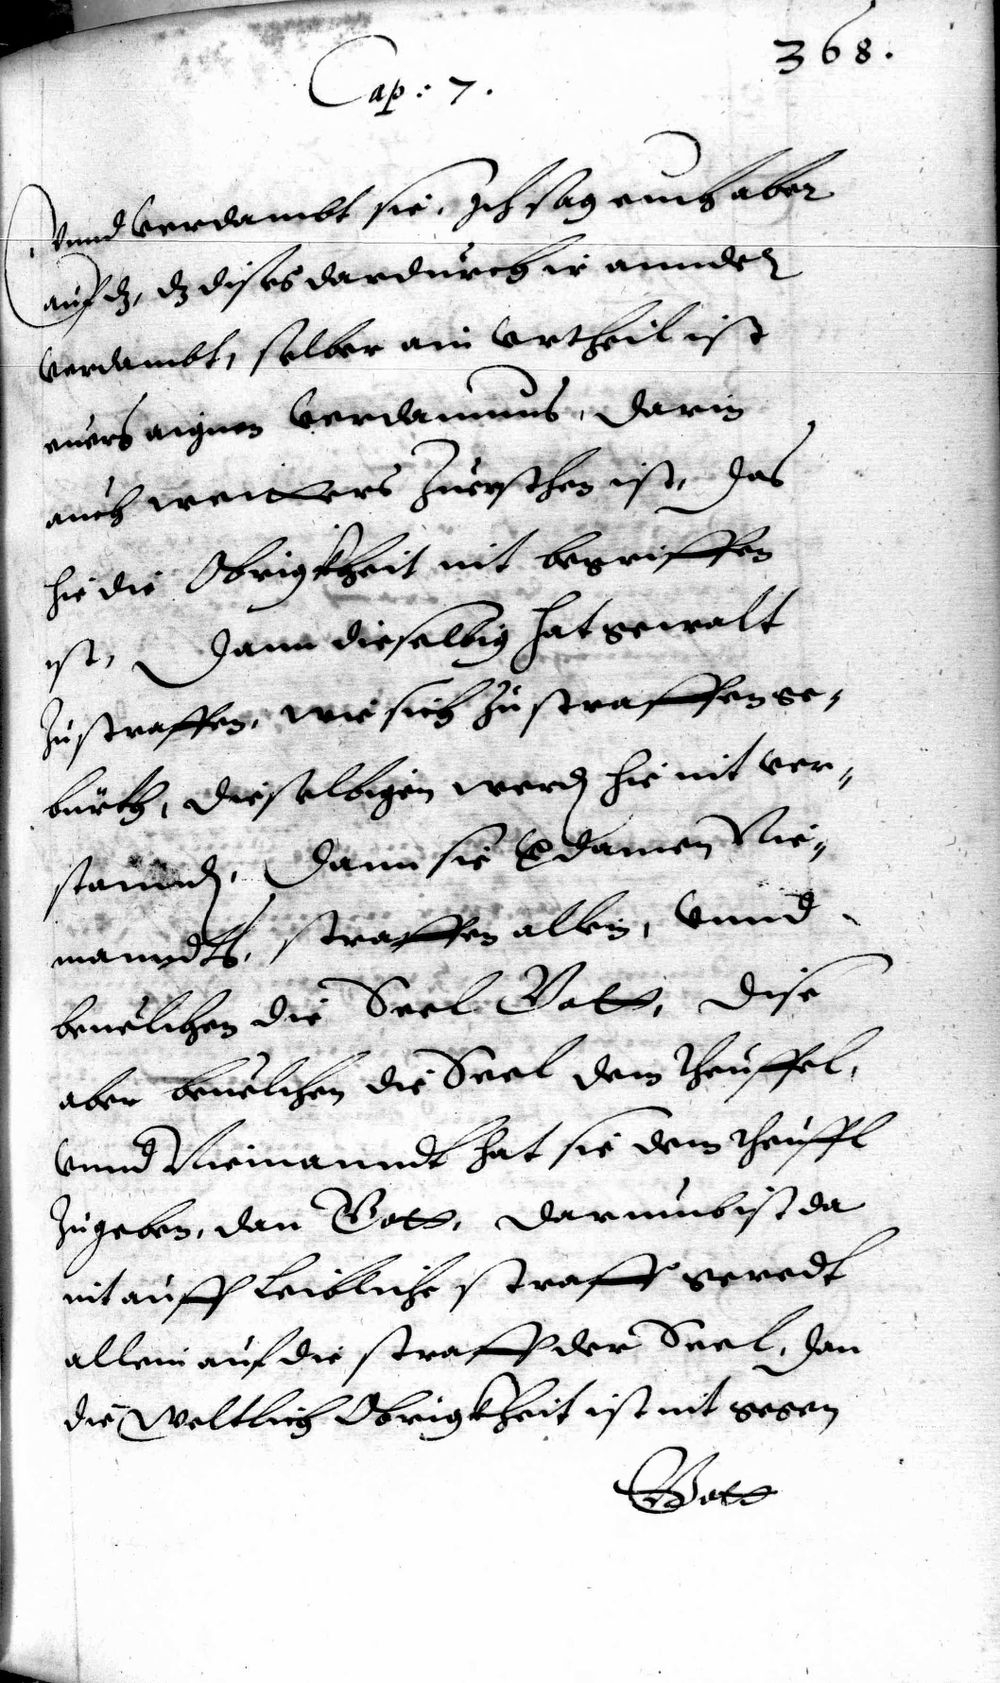 368.
Cap: 7.
Vnnd verdambt sie, Ich sag euch aber
auf dz, dz dises dardurch ir annder
verdambt, selber ain Vrtheil ist
euers aignen verdamnus, darin
auch weitters Zuersehen ist, das
hie die Obrigkheit nit begriffen
ist, Dann dieselbig hat gewalt
Zustraffen, wie sichs Zustraffen ge„
bürth, dieselbigen werden hie nit ver„
standen, Dann sie Vdamen Nie„
manndts, straffen allein, Vnnd
beuelchen die Seel Gott, Dise
aber beuelchen die Seel dem theuffel,
Vnnd Niemanndt hat sie dem theuffl
Zugeben, dan Gott, Darumb ist da
nit auff Leibliche straff geredt
allein auf die straff der Seel, dan
die Weltlich Obrigkheit ist nit gegen
Gott